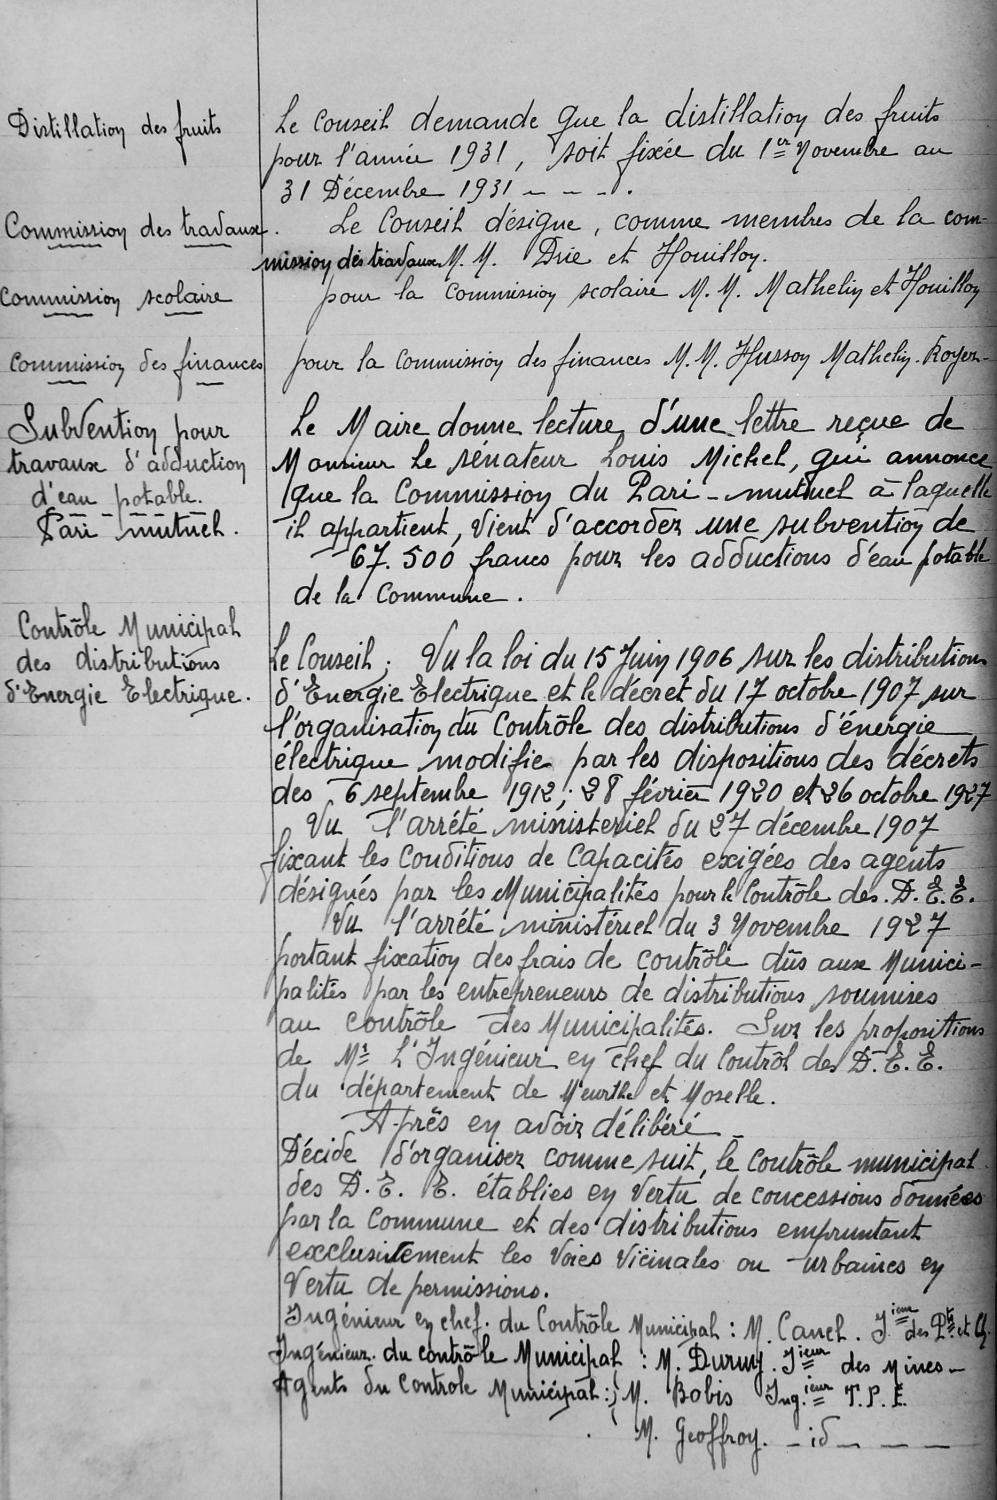 Distillation des fruits
Le Conseil demande que la distillation des fruits
pour l'année 1931, soit fixée du 1er Novembre au
31 Décembre 1931 - - - .
Commission des travaux.
Le Conseil désigne, comme membres de la com-
mission des travaux M.M. Drie et Houillon.
Commission scolaire
pour la Commission scolaire M.M. Mathelin et Houillon
Commission des finances
pour la Commission des finances M.M. Husson Mathelin. Royer-
Subvention pour
travaux d'adduction
d'eau potable.
Pari mutuel.
Le Maire donne lecture d'une lettre reçue de
Monsieur Le sénateur Louis Michel, qui annonce
que la Commission du Pari-mutuel à laquelle
il appartient, vient d'accorder une subvention de
67.500 francs pour les adductions d'eau potable
de la Commune.
Contrôle Municipal
des distributions
d'Energie Electrique.
Le Conseil; Vu la loi du 15 Juin 1906 sur les distributions
d'Energie Electrique et le décret du 17 octobre 1907 sur
l'organisation du Contrôle des distributions d'énergie
électrique modifie par les dispositions des décrets
des 6 septembre 1912; 28 février 1920 et 26 octobre 1927
Vu l'arrété ministeriel du 27 décembre 1907
fixant les Conditions de Capacités exigées des agents
désignés par les Municipalités pour le Contrôle des D.E.E.
Vu l'arrété ministériel du 3 Novembre 1927
portant fixation des frais de contrôle dûs aux Munici-
palités par les entrepreneurs de distributions soumises
au contrôle des Municipalités. Sur les propositions
de Mr L'Ingénieur en chef du Contrôl des D.E.E.
du département de Meurthe et Moselle.
Après en avoir délibéré -
Décide d'organiser comme suit, le contrôle municipal
des D.E.E. établies en vertu de concessions données
par la Commune et des distributions empruntant
exclusivement les Voies Vicinales ou urbaines en
Vertu de permissions.
Ingénieur en chef. du Contrôle Municipal : M. Canel. Jieur des Pts et Ch.
Ingénieur. du contrôle Municipal : M. Duruy. Jieur des Mines -
Agents du Controle Municipal : M. Bobis Ing.ieur T.P.E.
M. Geoffroy. - id - - - -